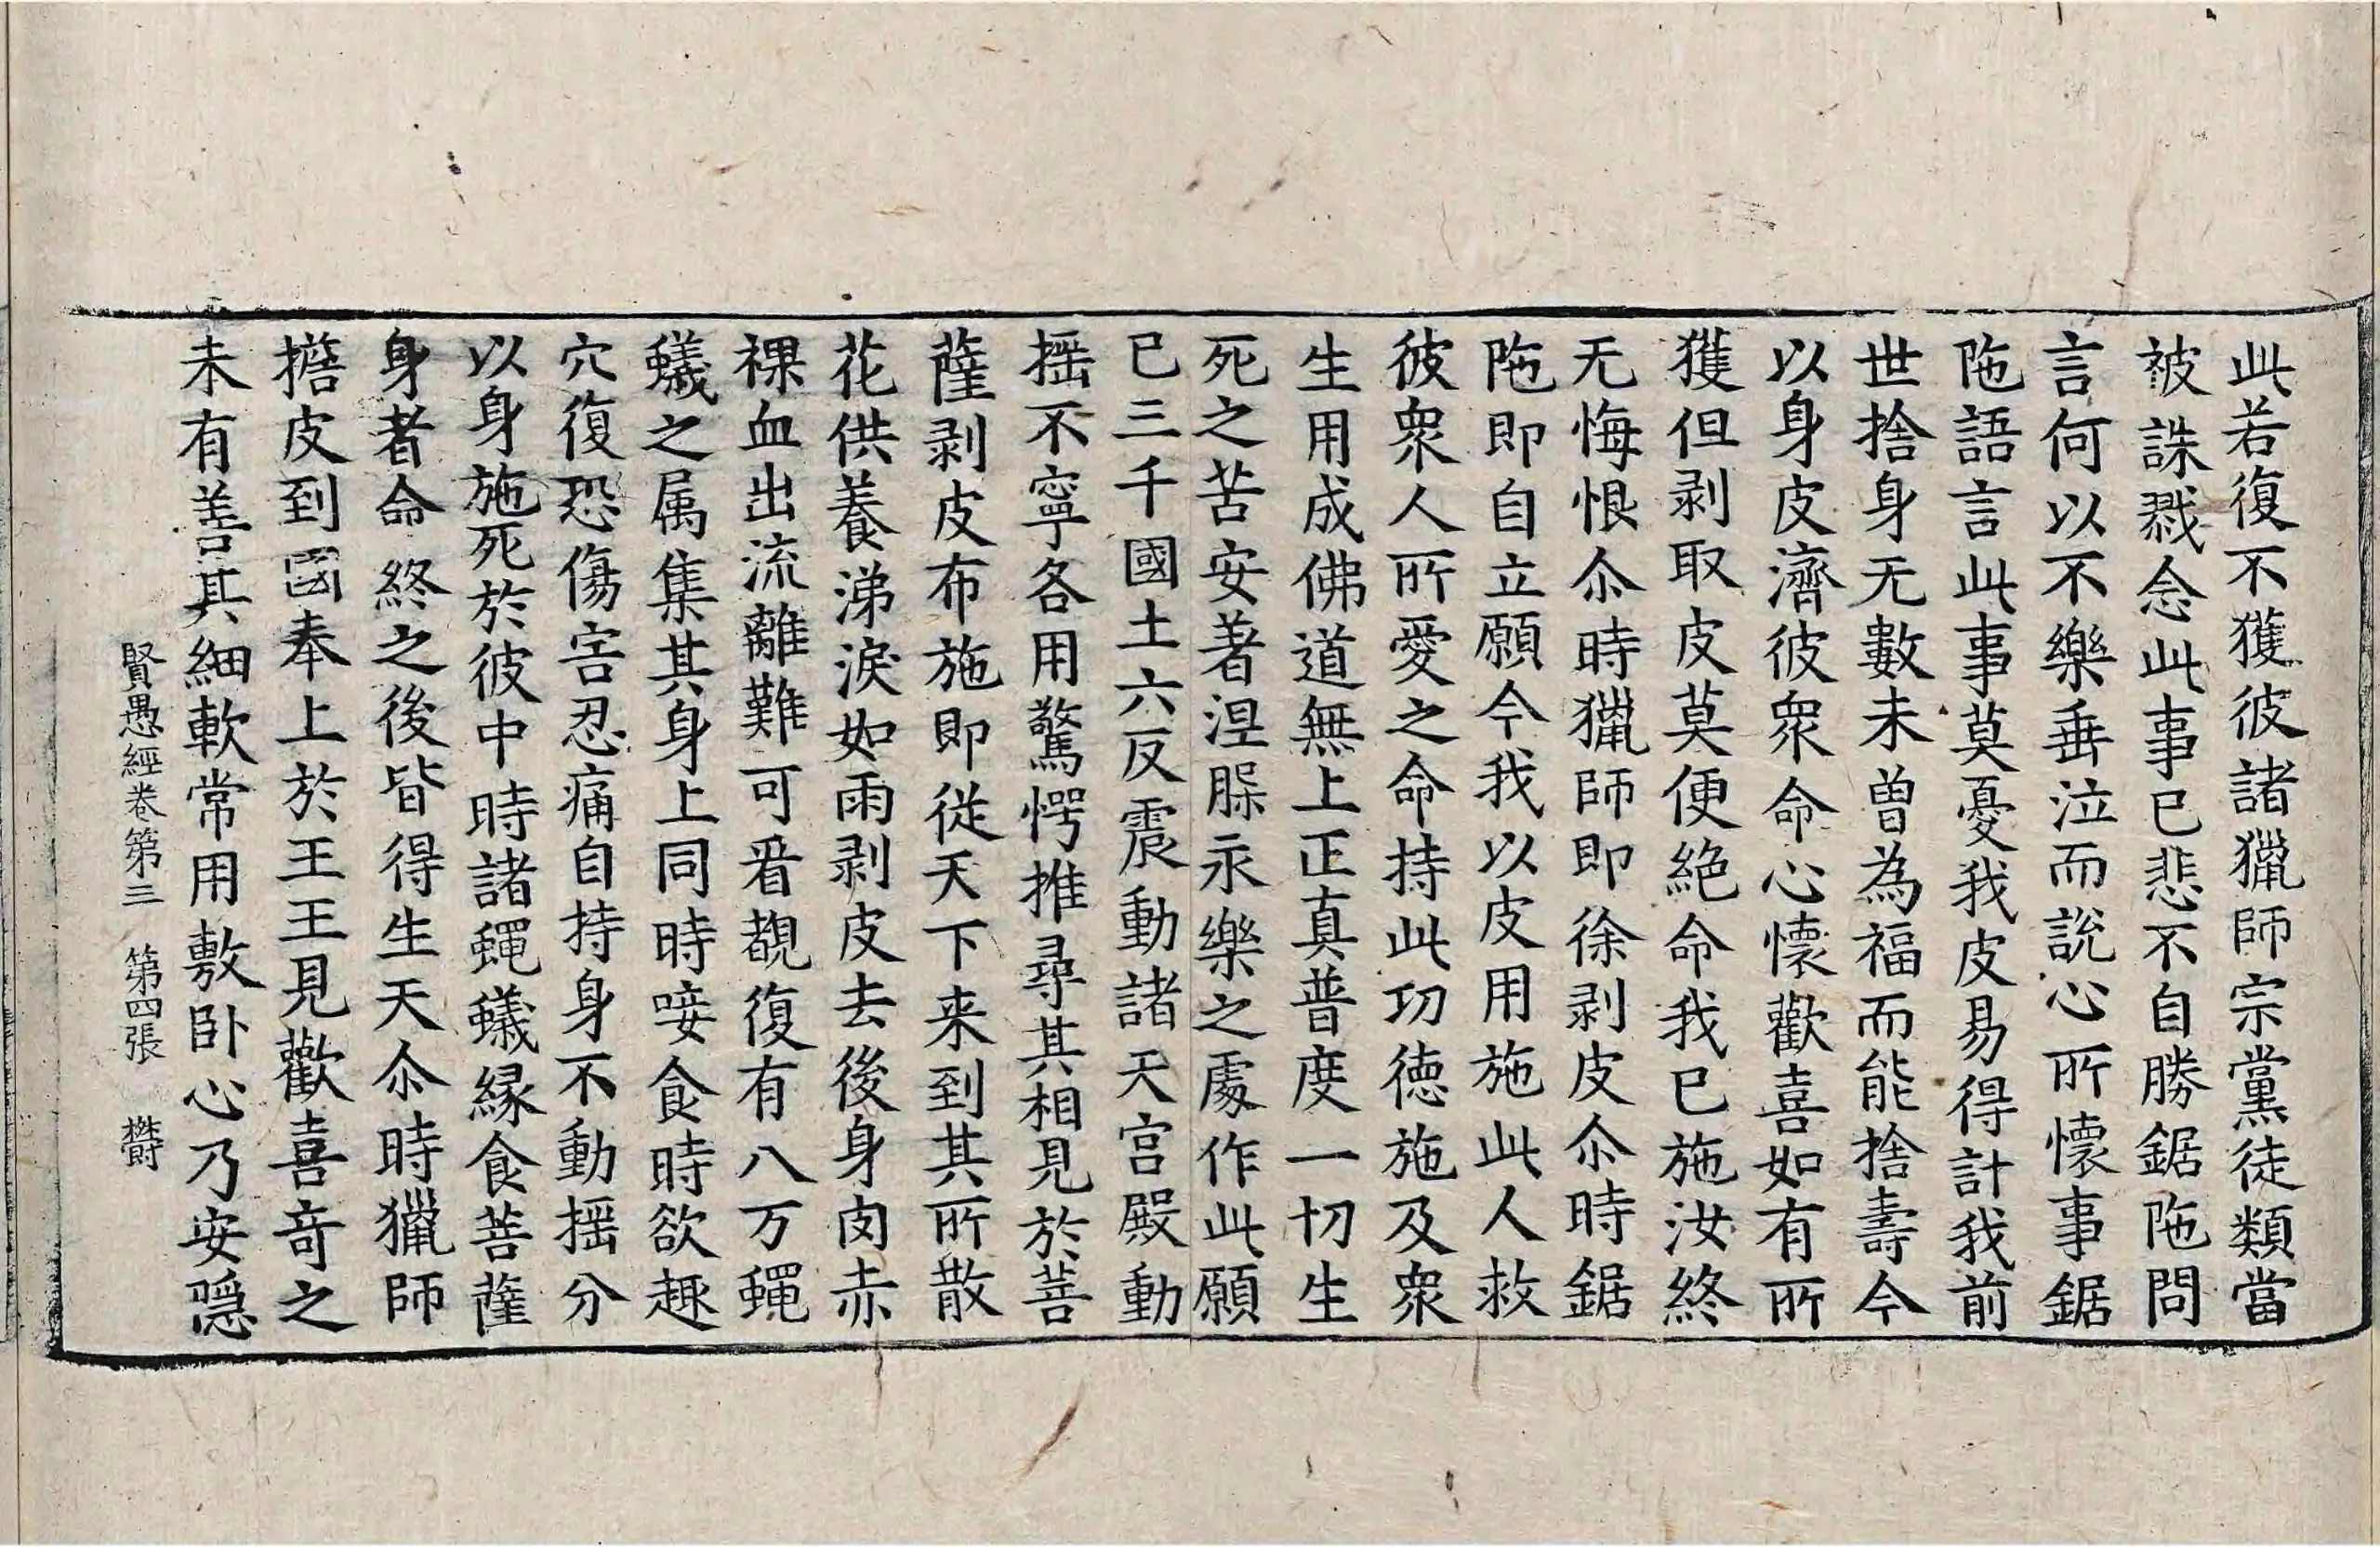 此若復不獲彼諸獵師宗黨徒類當
被誅戮念此事已悲不自勝鋸陁問
言何以不樂垂泣而說心所懷事鋸
陁語言此事莫憂我皮易得計我前
世捨身无數未曾為福而能捨壽今
以身皮濟彼衆命心懷歡喜如有所
獲但剥取皮莫便絶命我已施汝終
无悔恨尒時獵師即徐剥皮尒時鋸
陁即自立願今我以皮用施此人救
彼衆人所愛之命持此功德施及衆
生用成佛道無上正真普度一切生
死之苦安著涅槃永樂之處作此願
已三千國土六反震動諸天宫殿動
揺不寧各用驚愕推尋其相見於菩
薩剥皮布施即從天下来到其所散
花供養涕淚如雨剥皮去後身肉赤
祼血出流離難可看覩復有八万蠅
蟻之属集其身上同時唼食時欲趣
穴復恐傷害忍痛自持身不動揺分
以身施死於彼中時諸蠅蟻緣食菩薩
身者命終之後皆得生天尒時獵師
擔皮到國奉上於王王見歡喜奇之
未有善其細軟常用敷卧心乃安隠
賢愚經卷第三　第四張　欝